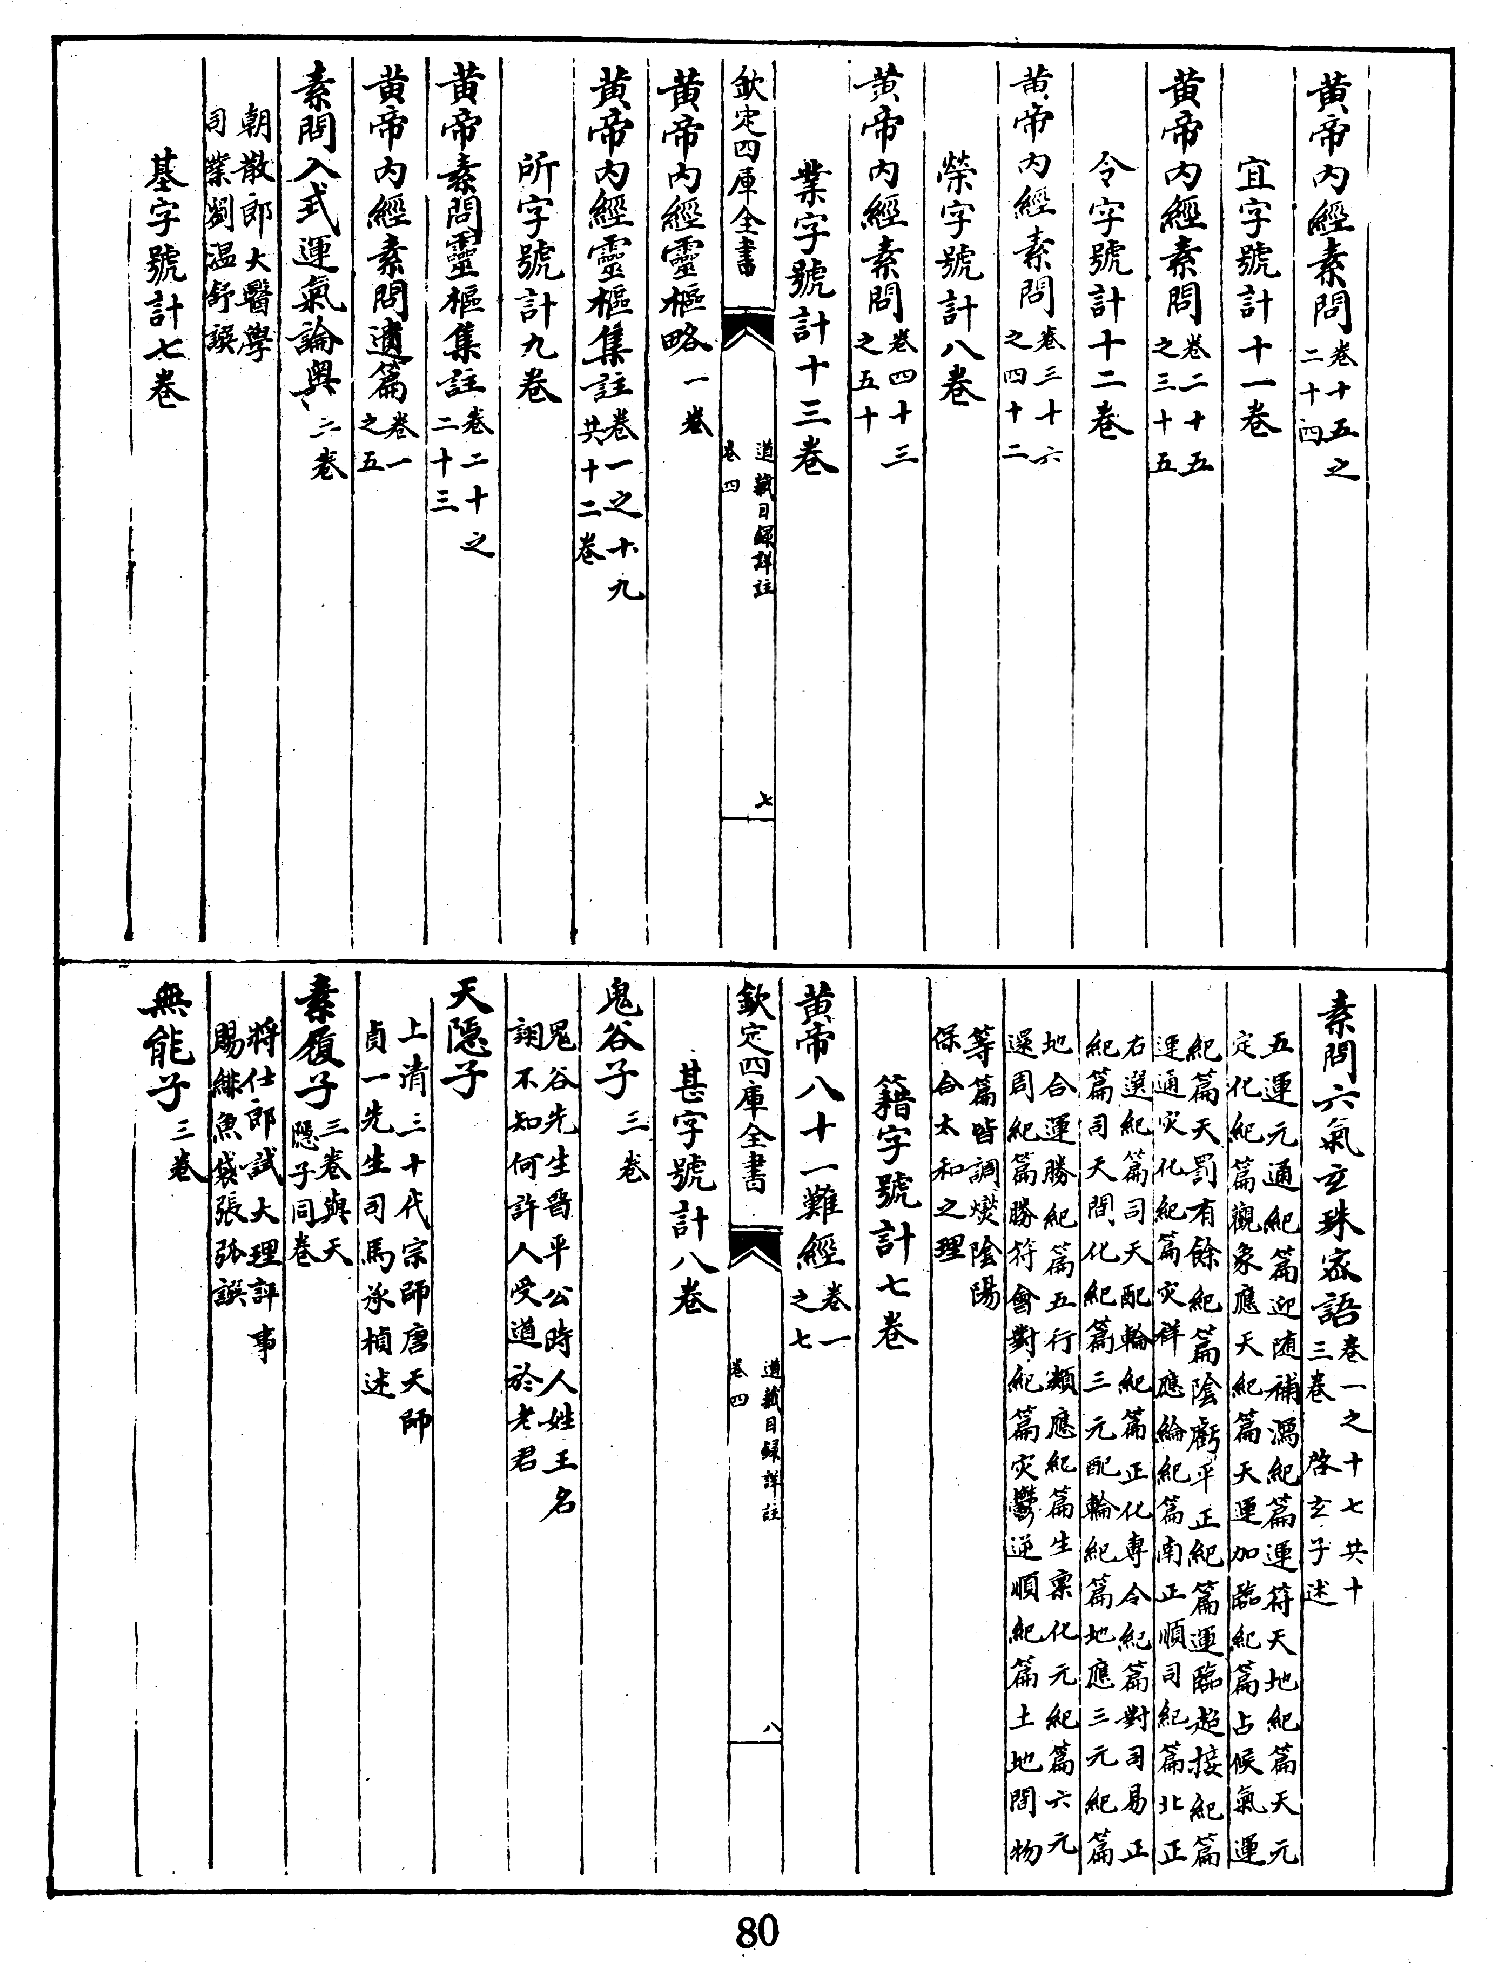 黄帝内經素問卷十五之二十四
宜字號計十一卷
黄帝内經素問卷二十五之三十五
令字號計十二卷
黄帝内經素問卷三十六之四十二
榮字號計八卷
黄帝内經素問卷四十三之五十
業字號計十三卷
欽定四庫全書 道藏目録詳註卷四 七
黄帝内經靈樞略一卷
黄帝内經靈樞集註卷一之十九共十二卷
所字號計九卷
黄帝素問靈樞集註卷二十之二十三
黄帝内經素問遺篇卷一之五
素問入式運氣論奥三卷
朝散郎大醫學
司業劉温舒譔
基字號計七卷
素問六氣玄珠宻語卷一之十七共十三卷 啓玄子述
五運元通紀篇迎随補瀉紀篇運符天地紀篇天元
定化紀篇觀象應天紀篇天運加臨紀篇占候氣運
紀篇天罰有餘紀篇陰虧平正紀篇運臨超接紀篇
運通灾化紀篇灾祥應綸紀篇南正順司紀篇北正
右選紀篇司天配輪紀篇正化専令紀篇對司易正
紀篇司天間化紀篇三元配輪紀篇地應三元紀篇
地合運勝紀篇五行類應紀篇生禀化元紀篇六元
還周紀篇勝符會對紀篇灾鬱逆順紀篇土地間物
等篇皆調爕陰陽
保合太和之理
籍字號計七卷
黄帝八十一難經卷一之七
欽定四庫全書 道藏目録詳註卷四 八
甚字號計八卷
鬼谷子三卷
鬼谷先生晉平公時人姓王名
詡不知何許人受道於老君
天隱子
上清三十代宗師唐天師
貞一先生司馬承楨述
素履子三卷與天隱子同卷
將仕郎試大理評事
賜緋魚袋張弧譔
無能子三卷
80